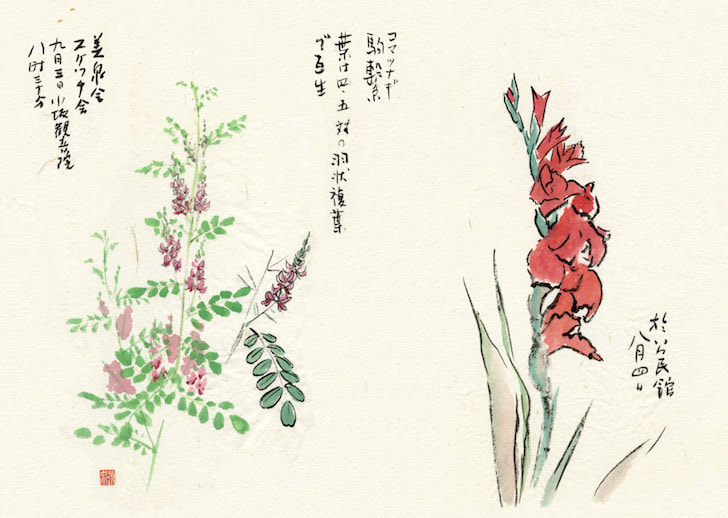 於公民館
八月四日
コマツナギ
駒繋
葉は四、五対の羽状複葉
で互生
美泉会
スケッチ会
九月三日小坂観音院
八時三十分